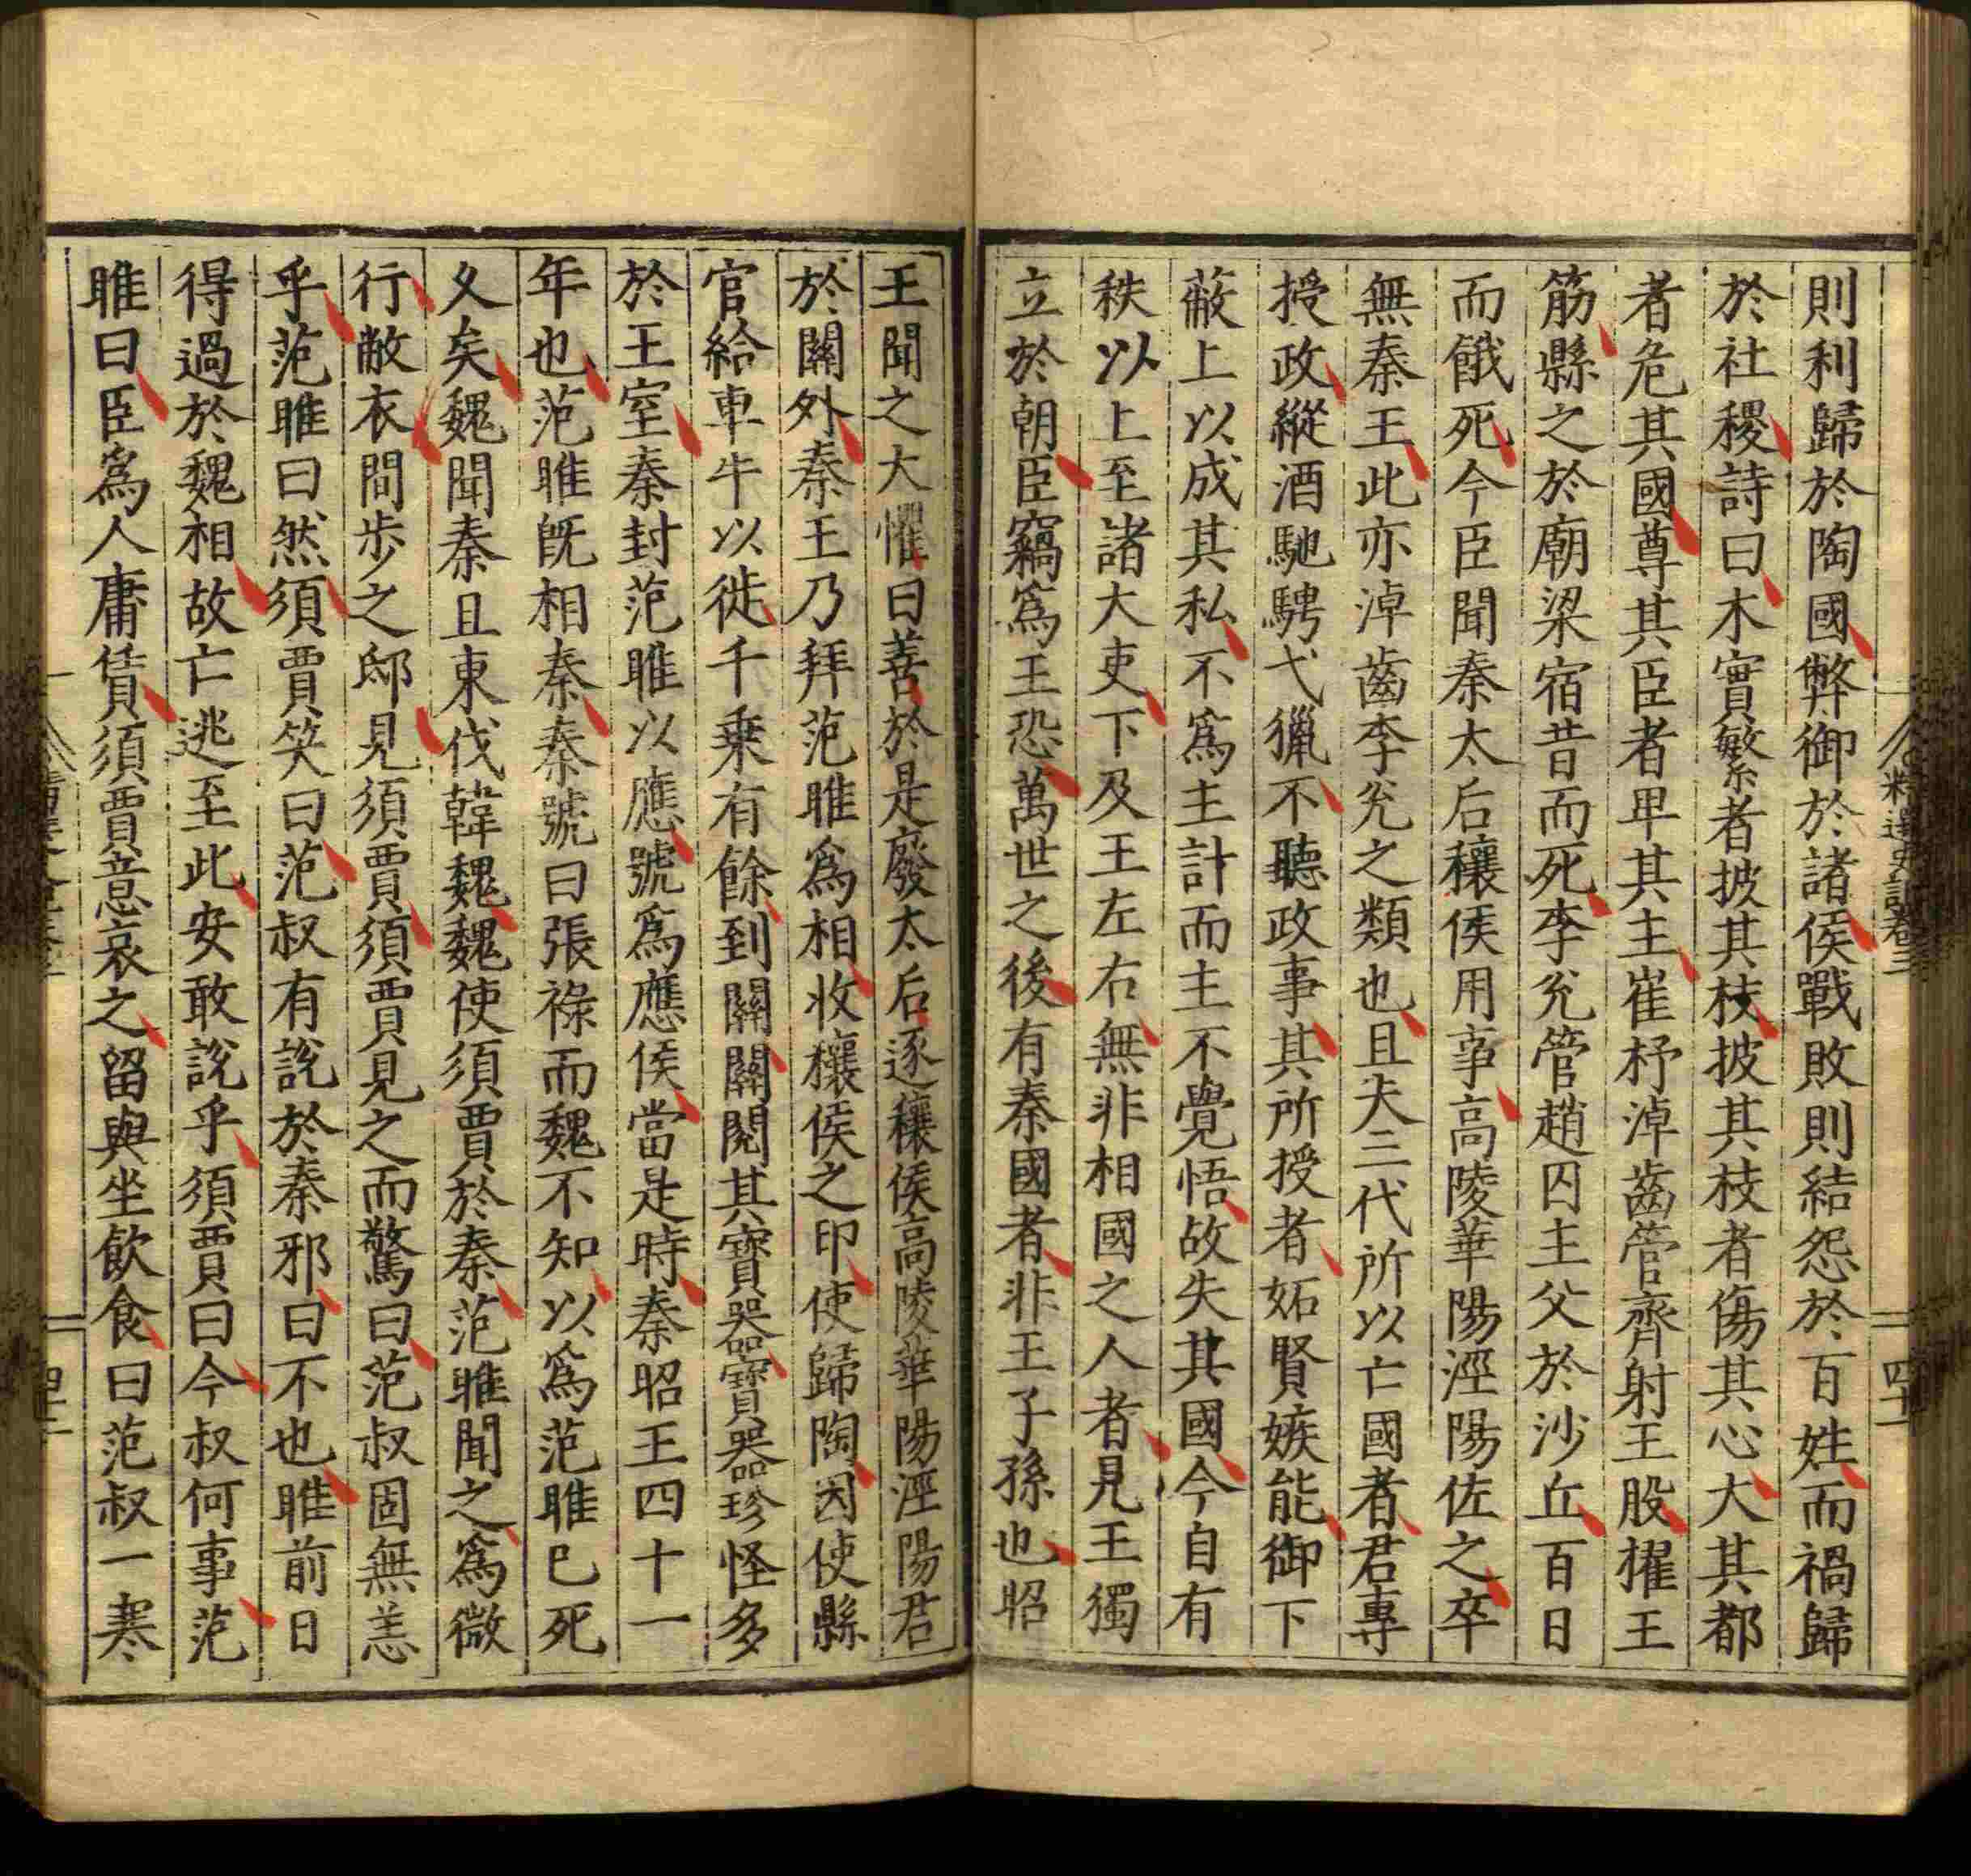 則利歸於陶國弊御於諸侯戰敗則結怨於百姓而禍歸
於社稷詩曰木實繁者披其枝披其枝者傷其心大其都
者危其國尊其臣者卑其主崔杼淖齒管齊射王股擢王
筋縣之於廟梁宿昔而死李兊管趙囚主父於沙丘百日
而餓死今臣聞秦太后穰侯用事高陵華陽涇陽佐之卒
無秦王此亦淖齒李兊之類也且夫三代所以亡國者君專
授政縱酒馳騁弋獵不聽政事其所授者妬賢嫉能御下
蔽上以成其私不爲主計而主不覺悟故失其國今自有
秩以上至諸大吏下及王左右無非相國之人者見王獨
立於朝臣竊爲王恐萬世之後有秦國者非王子孫也昭
王聞之大懼曰善於是廢太后逐穰侯高陵華陽涇陽君
於關外秦王乃拜范雎爲相收穰侯之印使歸陶因使縣
官給車牛以徙千乗有餘到關關閱其寶器寶器珍怪多
於王室秦封范雎以應號爲應侯當是時秦昭王四十一
年也范雎旣相秦秦號曰張祿而魏不知以爲范雎已死
久矣魏聞秦且東伐韓魏魏使須賈於秦范雎聞之爲微
行敝衣間步之邸見須賈須賈見之而驚曰范叔固無恙
乎范雎曰然須賈笑曰范叔有說於秦邪曰不也雎前日
得過於魏相故亡逃至此安敢說乎須賈曰今叔何事范
雎曰臣爲人庸賃須賈意哀之留與坐飲食曰范叔一寒
精選史記卷三
四十一